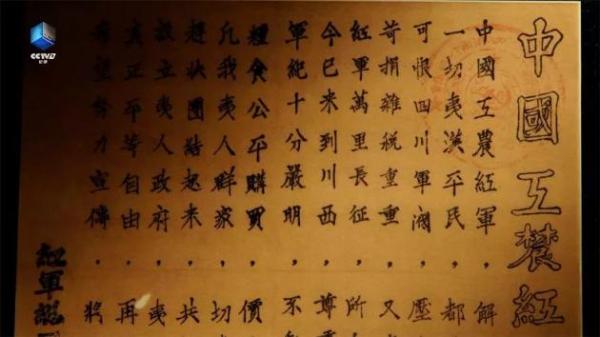 CCTV9
中國工農紅
中國工農紅軍，解
一切夷漢平民，都
可恨四川軍閥，壓
苛捐雜稅重重，又
紅軍萬里長征，所
今已来到川西，尊
軍紀十分嚴明，不
糧食公平購買，價
凡我夷人群家，切
趕快團結起来，共
設立夷人政府，夷
真正平等自由，再
希望努力宣傳，將
紅軍總